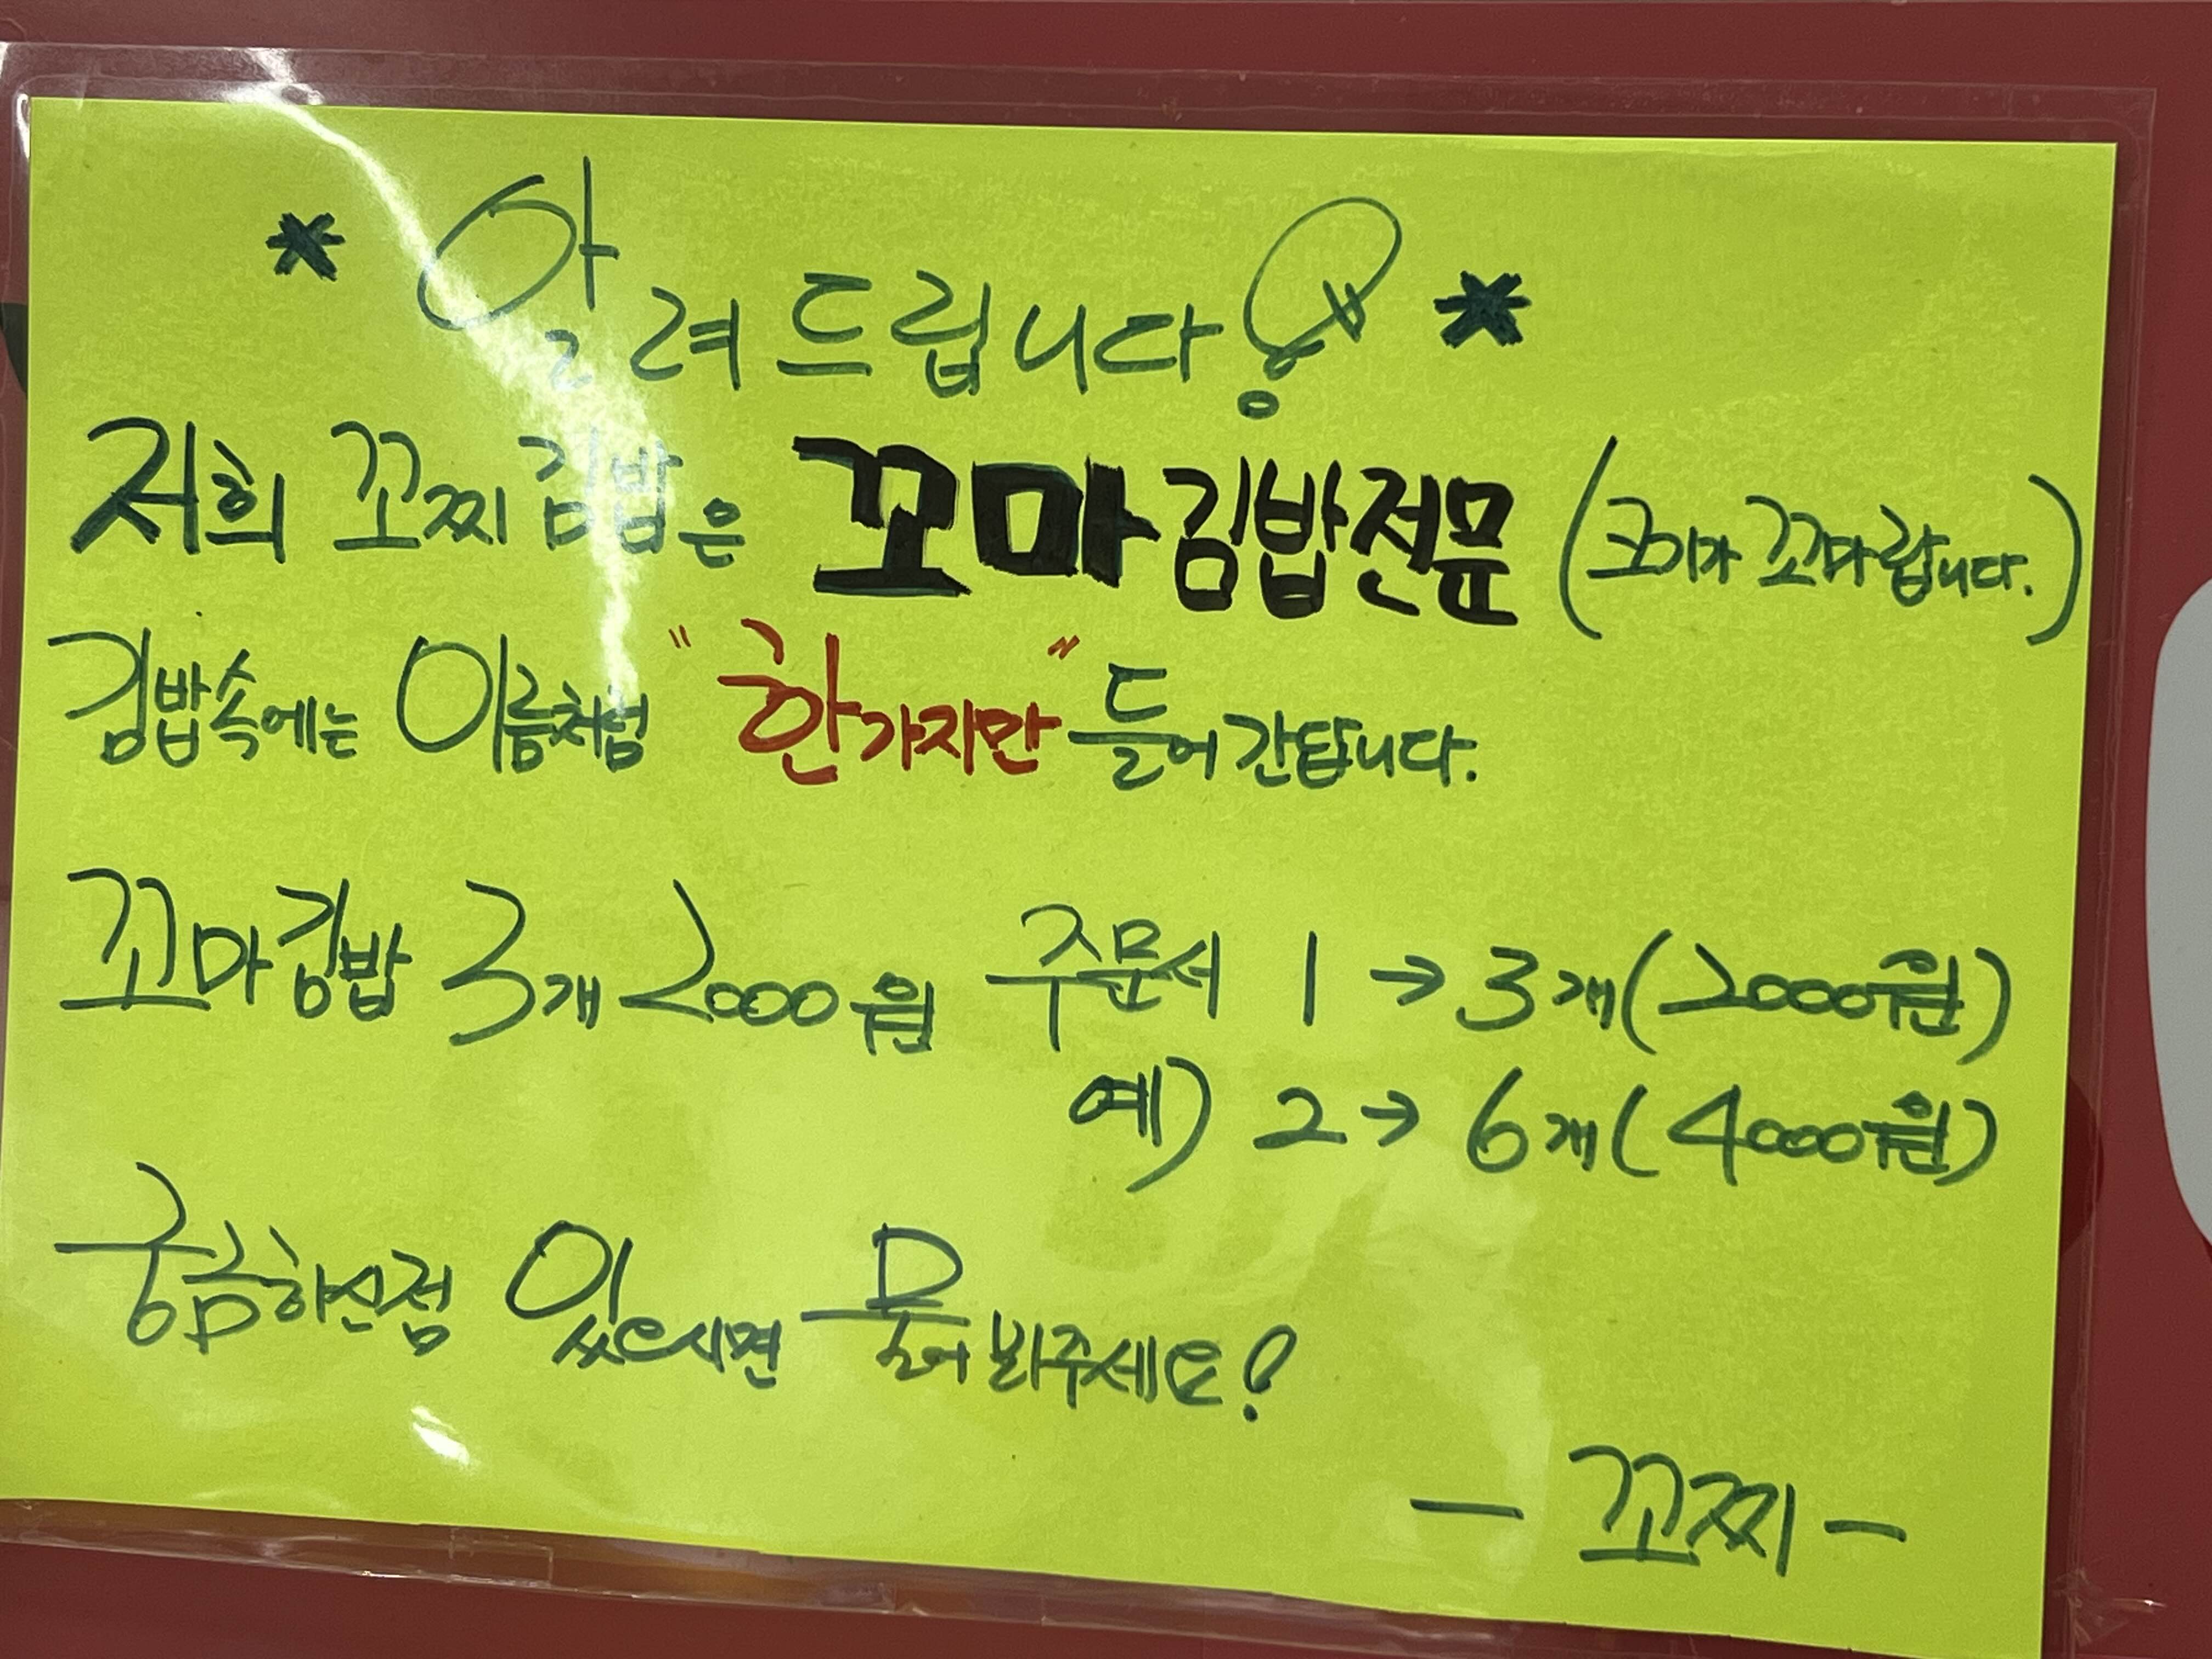 * 알려드립니다! *
저희 꼬찌김밥은 꼬마김밥전문 (크기가 꼬마랍니다.)
김밥속에는 이름처럼 "한가지만" 들어간답니다.
꼬마김밥 3개 2000원 주문서 1 → 3개(2000원)
예) 2 → 6개(4000원)
궁금하신점 있으시면 물어봐주세요!
- 꼬찌 -